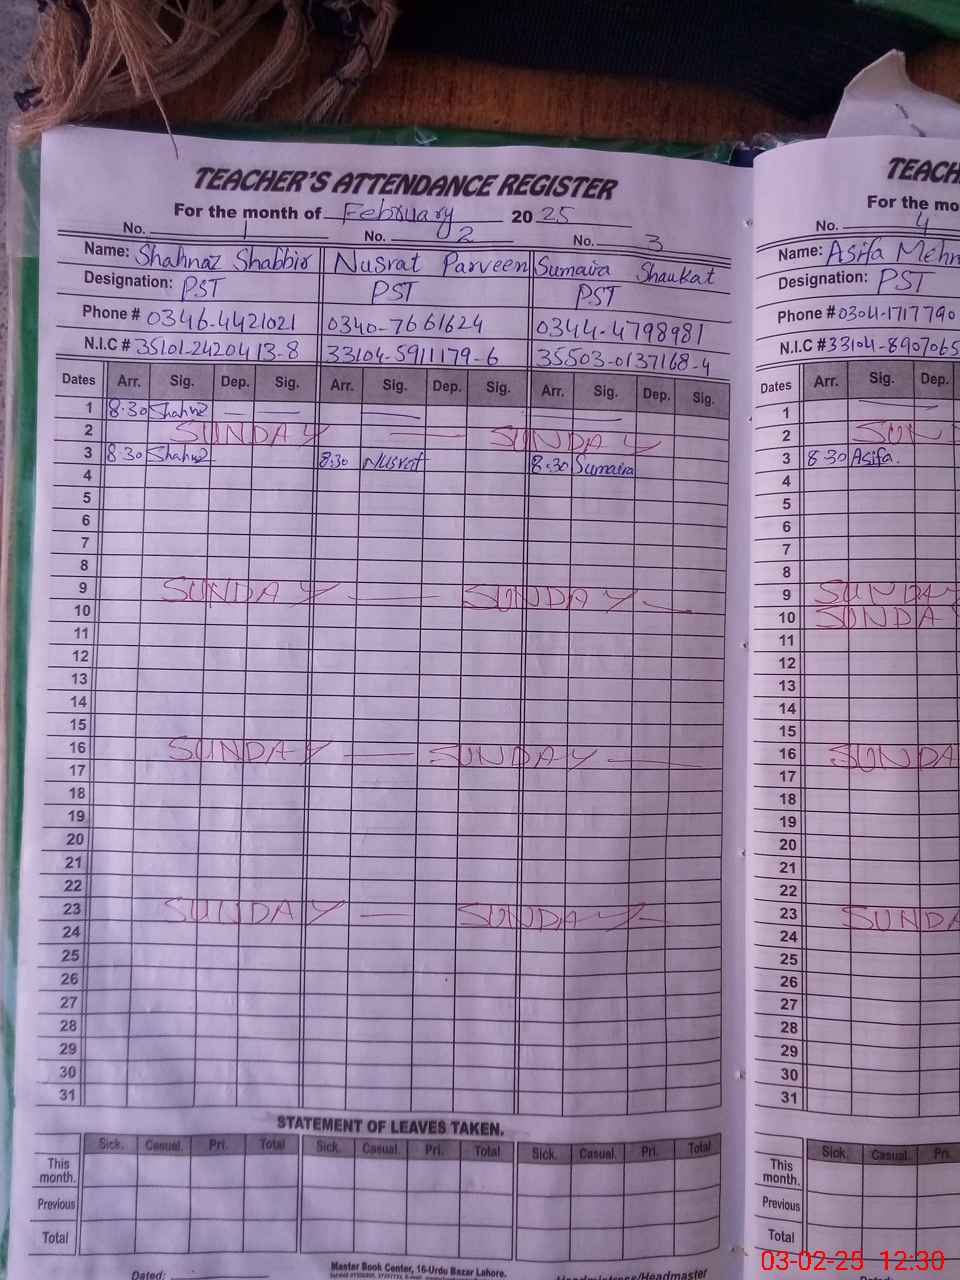 TEACHER'S ATTENDANCE REGISTER
For the month of February 2025
No. 1 No. 2 No. 3
Name: Shahnaz Shabbir Nusrat Parveen Sumaira Shaukat
Designation: PST PST PST
Phone # 0346-4421021 0340-7661624 0344-4798981
N.I.C # 35101-2420413-8 33104-5911179-6 35503-0137168-4
Dates Arr. Sig. Dep. Sig. Arr. Sig. Dep. Sig. Arr. Sig. Dep. Sig.
1 8.30 Shahnaz — — — —
2 SUNDAY — SUNDAY
3 8.30 Shahnaz 8.30 Nusrat 8.30 Sumaira
4
5
6
7
8
9 SUNDAY — SUNDAY —
10
11
12
13
14
15
16 SUNDAY — SUNDAY —
17
18
19
20
21
22
23 SUNDAY — SUNDAY
24
25
26
27
28
29
30
31
STATEMENT OF LEAVES TAKEN.
Sick. Casual. Pri. Total Sick. Casual. Pri. Total Sick. Casual. Pri. Total
This month.
Previous
Total
Master Book Center, 16-Urdu Bazar Lahore.
Dated: Headmistress/Headmaster
TEACH
For the mo
No. 4
Name: Asifa Mehr
Designation: PST
Phone # 0304-1717790
N.I.C # 33104-8907065
Dates Arr. Sig. Dep.
1 —
2 SUN
3 8.30 Asifa.
4
5
6
7
8
9 SUNDAY
10 SUNDA
11
12
13
14
15
16 SUNDA
17
18
19
20
21
22
23 SUNDA
24
25
26
27
28
29
30
31
Sick. Casual. Pri.
This month.
Previous
Total
03-02-25 12:30